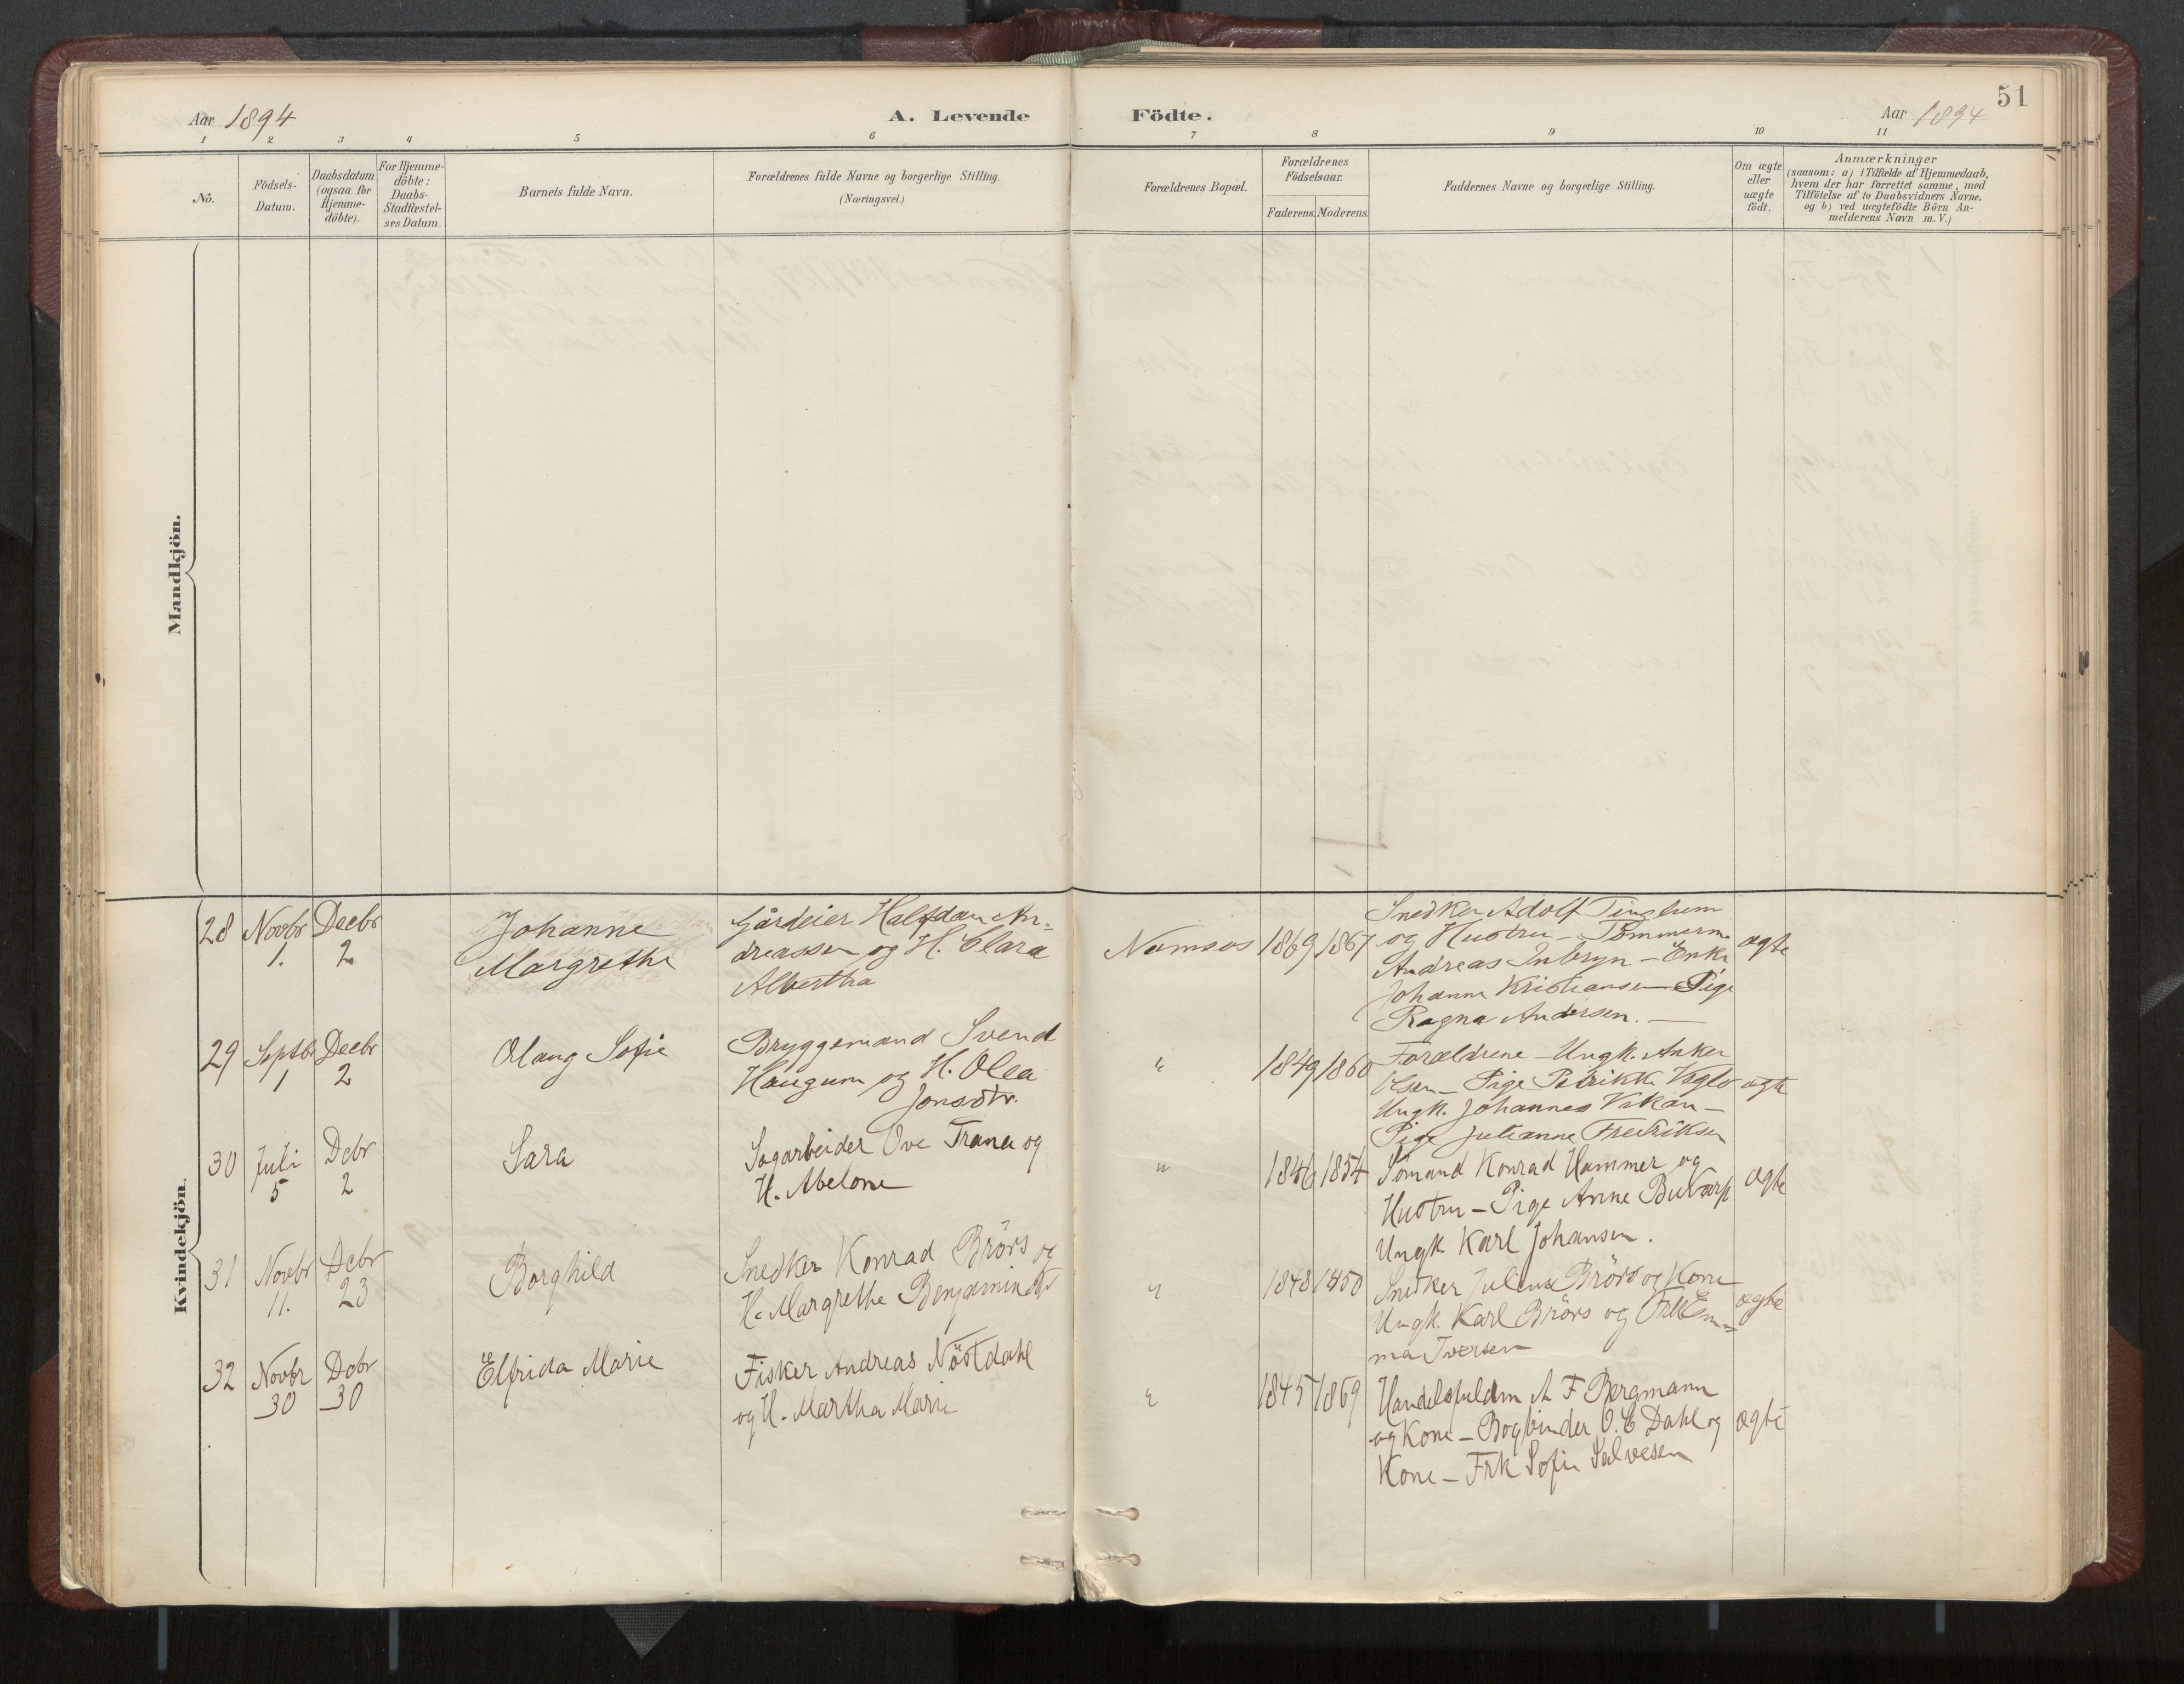 51
Aar 1894
A. Levende Födte.
Aar 1894
1 2 3 4 5 6 7 8 9 10 11
No.
Födsels-Datum.
Daabsdatum (ogsaa for Hjemme-döbte).
For Hjemme-döbte: Daabs-Stadfæstel-ses Datum.
Barnets fulde Navn.
Forældrenes fulde Navne og borgerlige Stilling.
(Næringsvei.)
Forældrenes Bopæl.
Forældrenes Födselsaar.
Faderens. Moderens.
Faddernes Navne og borgerlige Stilling.
Om ægte eller uægte födt.
Anmærkninger
(saasom: a) i Tilfælde af Hjemmedaab,
hvem der har forrettet samme, med
Tilföielse af to Daabsvidners Navne.
og b) ved uægtefödte Börn An-
melderens Navn m. V.)
Mandkjön.
Kvindekjön.
28 Novbr 1. Decbr 2
Johanne
Margrethe
Gårdeier Halfdan An-
dreassen og H. Clara
Albertha
Namsos 1869 1867
Snedker Adolf
og Hustru - Tömmerm.
Andreas - Enke
Johanne Kristiansen - Pige
Ragna Andersen. -
ægte
29 Septbr 1 Decbr 2
Olaug Sofie
Bryggemand Svend
Haugum og H. Olea
Jonsdtr.
" 1849 1860
Forældrene - Ungk. Anker
Olsen - Pige Petrikke
Ungk. Johannes Vikan -
Pige Julianne Fredriksen
ægte
30 Juli 5 Dcbr 2
Sara
Sagarbeider Ove Trana og
H. Abelone
" 1846 1854
Sömand Konrad Hammer og
Hustru - Pige Anne Buvarp
Ungk Karl Johansen.
ægte
31 Novbr 11. Dcbr 23
Borghild
Snedker Konrad Brörs og
H. Margrethe Benjamindtr
" 1848 1850
Snedker Julius Brörs og Kone
Ungk. Karl Brörs og Frk Em-
ma Iversen
ægte
32 Novbr 30 Dcbr 30
Elfrida Marie
Fisker Andreas Nöstdahl
og H. Martha Marie
" 1845 1869
Handelsfuldm A F Bergmann
og Kone - Bogbinder O. C Dahl og
Kone - Frk Sofie Salvesen
ægte